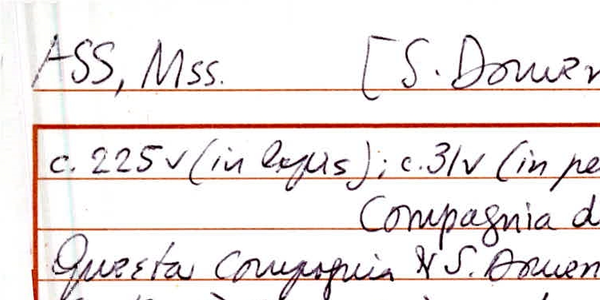 ASS, Mss. [S. Domen
c. 225v (in lapis); c. 31v (in pe
Compagnia d
Questa Compagnia di S. Domen